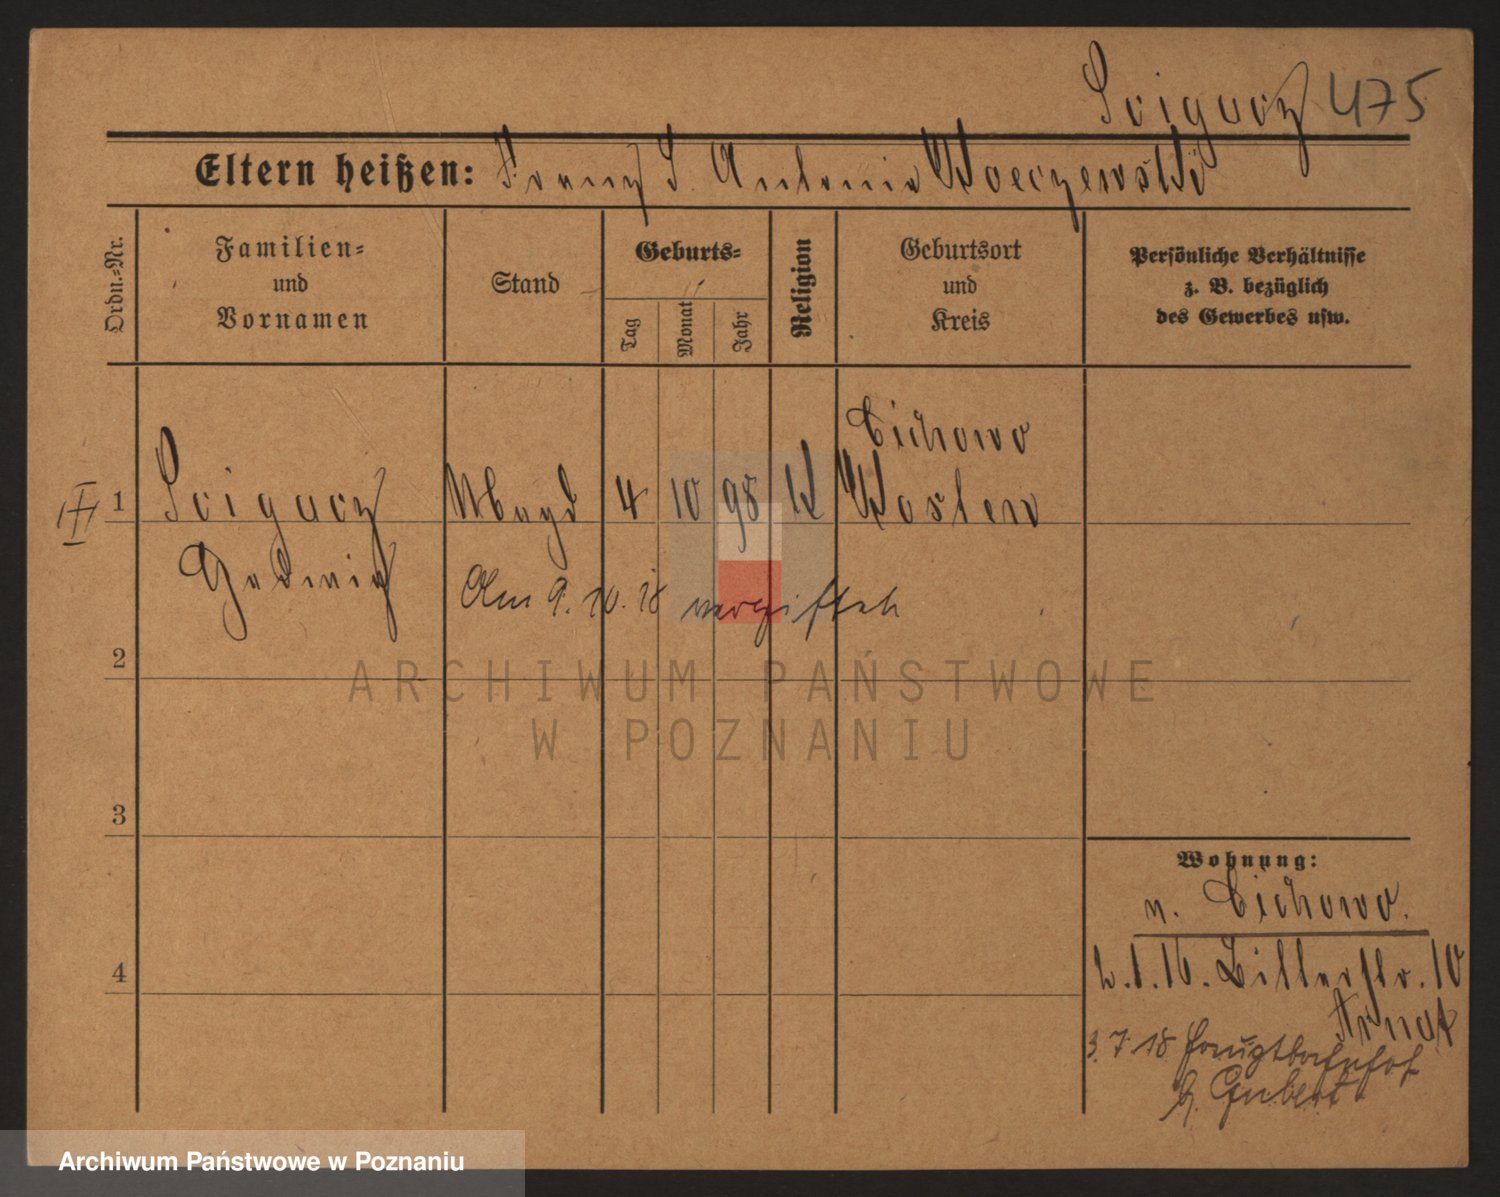 Scigacz 475
Eltern heißen: Franz S. Antonie Woeczewski
Ordn.-Nr.
Familien-
und
Vornamen
Stand
Geburts-
Tag
Monat
Jahr
Religion
Geburtsort
und
Kreis
Persönliche Verhältnisse
z. B. bezüglich
des Gewerbes usw.
Cichowo
III 1 Scigacz Magd 4 10 98 K Kosten
Hedwig
Am 9. 10. 18
2
ARCHIWUM PAŃSTWOWE
W POZNANIU
3
Wohnung:
n. Cichowo.
4
2.1.16. Bitterstr. 10
3.7.18 Hauptbahnhof
b.
Archiwum Państwowe w Poznaniu